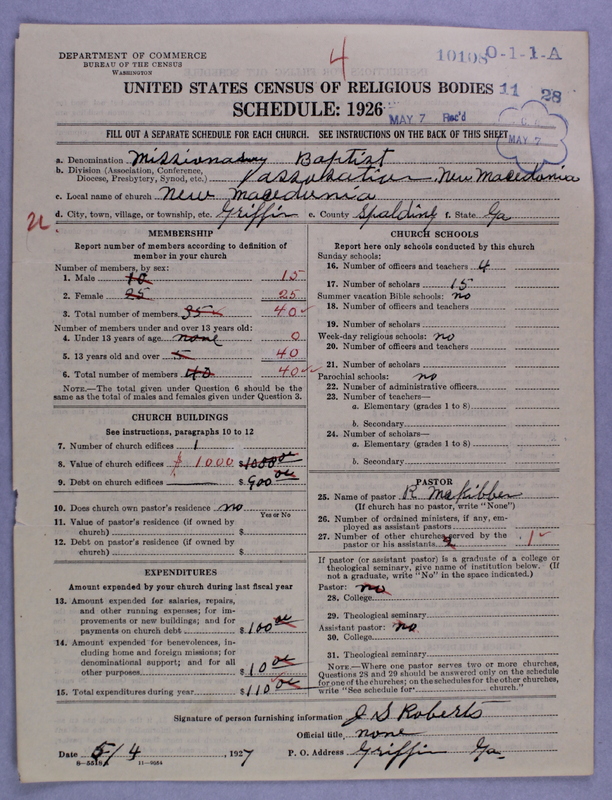 4
DEPARTMENT OF COMMERCE
BUREAU OF THE CENSUS
WASHINGTON
10108 0-1-1-A
UNITED STATES CENSUS OF RELIGIOUS BODIES 11 28
SCHEDULE: 1926
MAY 7 Rec'd
FILL OUT A SEPARATE SCHEDULE FOR EACH CHURCH. SEE INSTRUCTIONS ON THE BACK OF THIS SHEET
MAY 7
a. Denomination Missionary Baptist
b. Division (Association, Conference, Diocese, Presbytery, Synod, etc.) New Macedonia
c. Local name of church New Macedonia
d. City, town, village, or township, etc. Griffin e. County Spalding f. State Ga
MEMBERSHIP
Report number of members according to definition of
member in your church
Number of members, by sex:
1. Male 10 15
2. Female 25 25
3. Total number of members 35 40
Number of members under and over 13 years old:
4. Under 13 years of age none 0
5. 13 years old and over 5 40
6. Total number of members 40 40
NOTE.—The total given under Question 6 should be the
same as the total of males and females given under Question 3.
CHURCH BUILDINGS
See instructions, paragraphs 10 to 12
7. Number of church edifices 1
8. Value of church edifices $1000 $1000.00
9. Debt on church edifices $900.00
10. Does church own pastor's residence no
Yes or No
11. Value of pastor's residence (if owned by
church) $
12. Debt on pastor's residence (if owned by
church) $
EXPENDITURES
Amount expended by your church during last fiscal year
13. Amount expended for salaries, repairs,
and other running expenses; for im-
provements or new buildings; and for
payments on church debt $100.00
14. Amount expended for benevolences, in-
cluding home and foreign missions; for
denominational support; and for all
other purposes $10.00
15. Total expenditures during year $110.00
CHURCH SCHOOLS
Report here only schools conducted by this church
Sunday schools:
16. Number of officers and teachers 4
17. Number of scholars 15
Summer vacation Bible schools: no
18. Number of officers and teachers
19. Number of scholars
Week-day religious schools: no
20. Number of officers and teachers
21. Number of scholars
Parochial schools: no
22. Number of administrative officers
23. Number of teachers—
a. Elementary (grades 1 to 8)
b. Secondary
24. Number of scholars—
a. Elementary (grades 1 to 8)
b. Secondary
PASTOR
25. Name of pastor R McKibben
(If church has no pastor, write "None")
26. Number of ordained ministers, if any, em-
ployed as assistant pastors
27. Number of other churches served by the
pastor or his assistants 2 1
If pastor (or assistant pastor) is a graduate of a college or
theological seminary, give name of institution below. (If
not a graduate, write "No" in the space indicated.)
Pastor: no
28. College
29. Theological seminary
Assistant pastor: no
30. College
31. Theological seminary
NOTE.—Where one pastor serves two or more churches,
Questions 28 and 29 should be answered only on the schedule
for one of the churches; on the schedules for the other churches,
write "See schedule for church."
Signature of person furnishing information J S Roberts
Official title, none
Date 5/4, 1927 P. O. Address Griffin Ga
8—5518A 11—9054